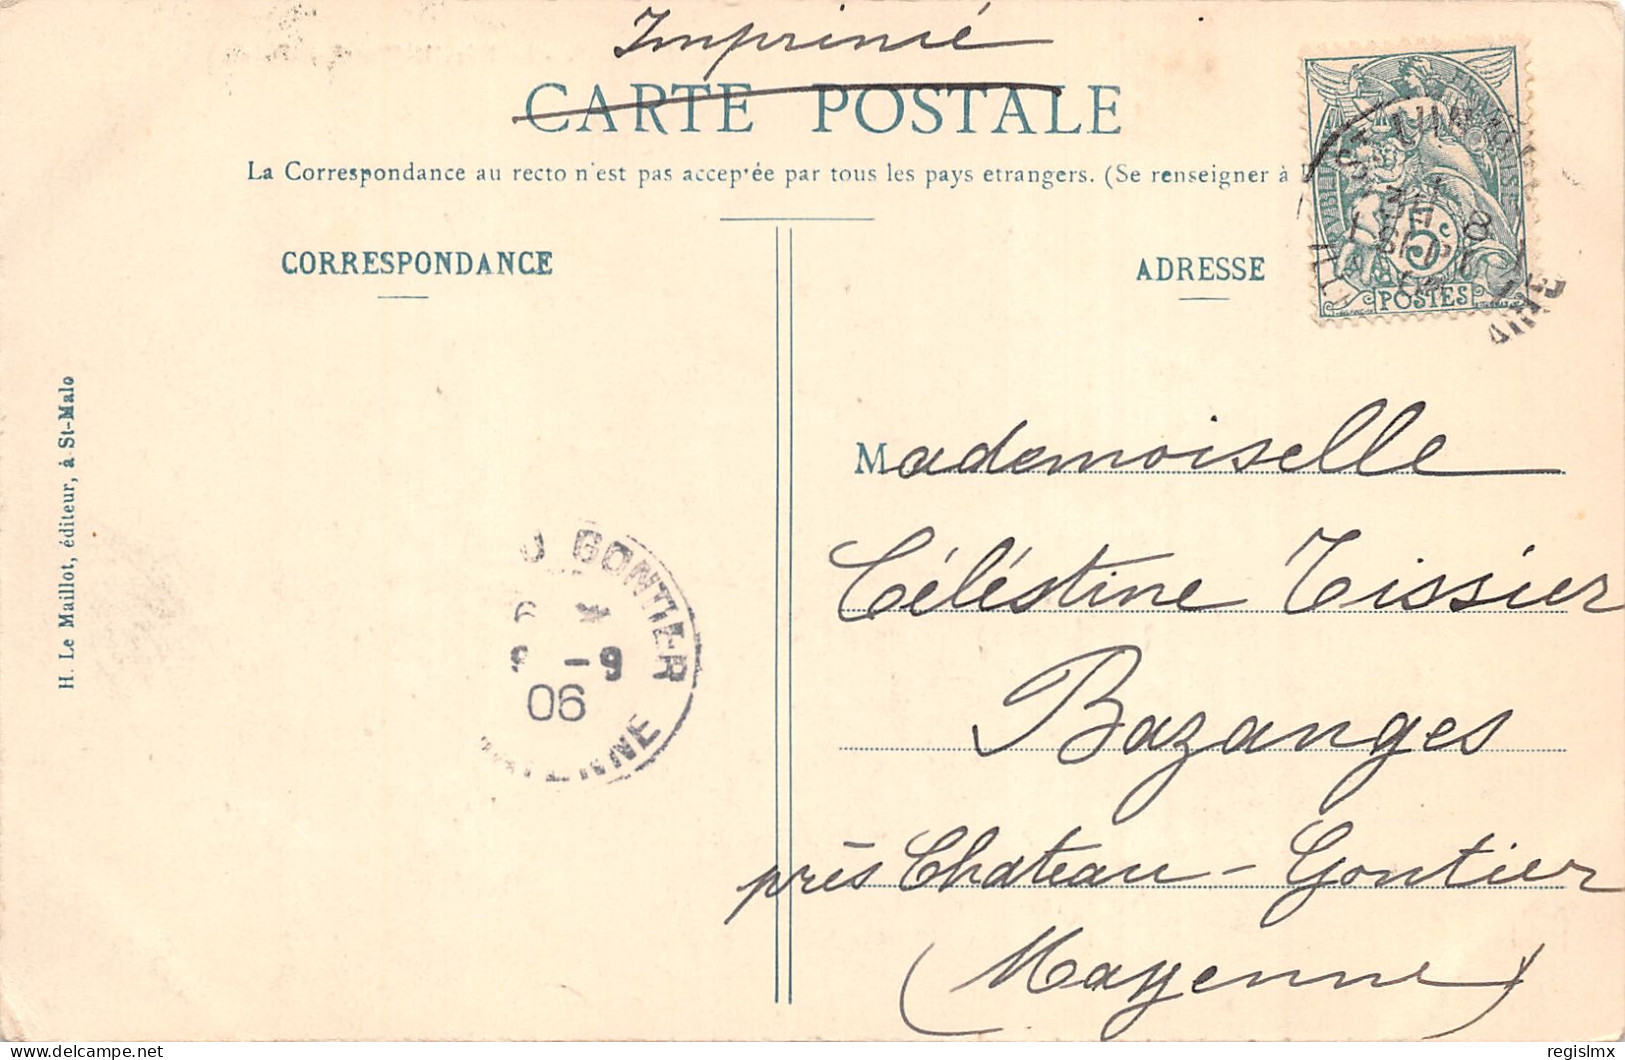 Imprimé
CARTE POSTALE
La Correspondance au recto n'est pas acceptée par tous les pays etrangers. (Se renseigner à
CORRESPONDANCE
ADRESSE
5c
POSTES
H. Le Maillot, éditeur, à St-Malo
Mademoiselle
Céléstine Tissier
Bazanges
près Chateau-Gontier
(Mayenne)
GONTIER
-9
06
delcampe.net
regislmx